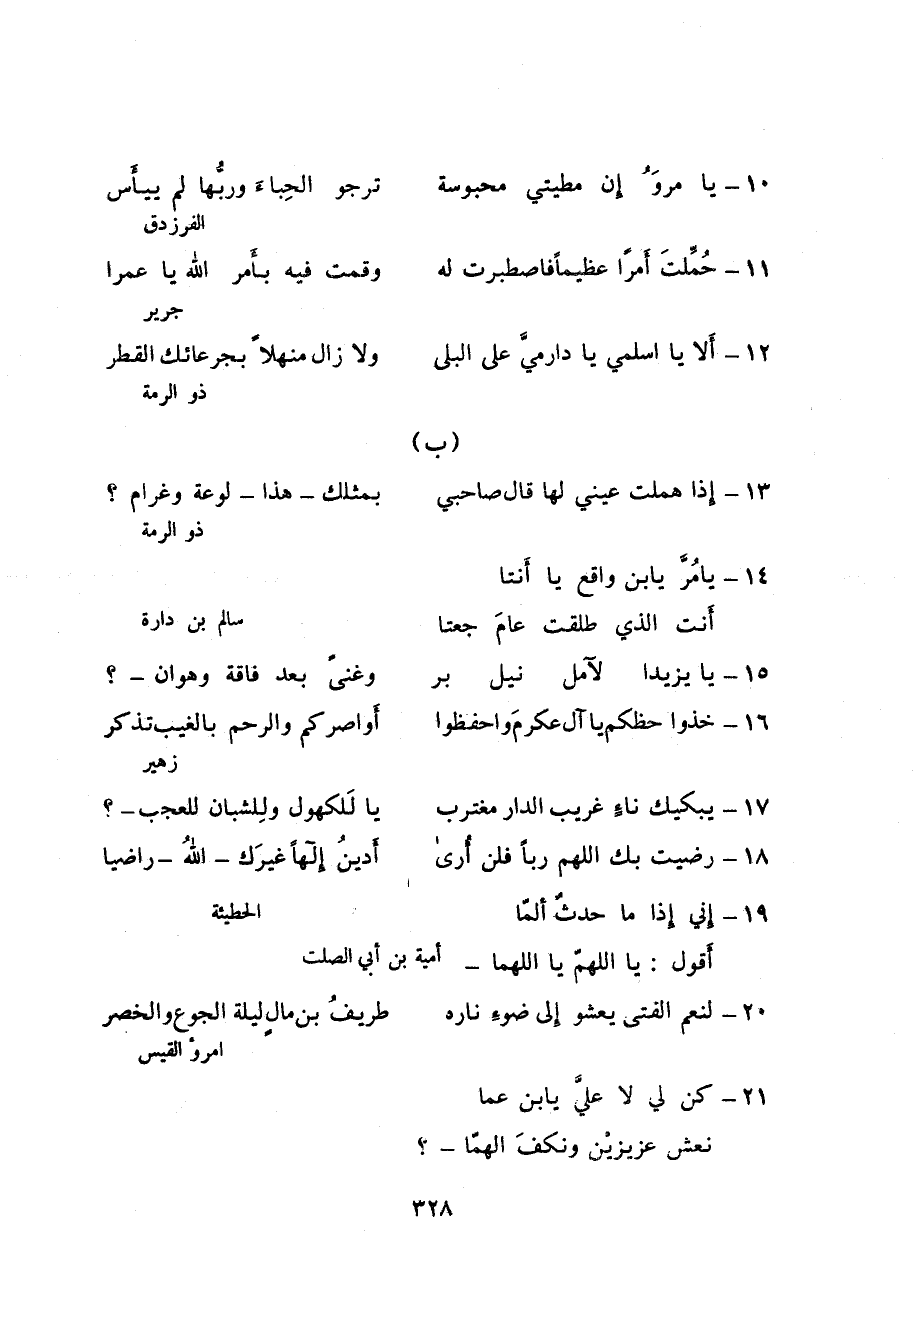 ١٠ – يا مروَُ إن مطيتي محبوسة ترجو الحِباءَ وربُّها لم ييأَس
الفرزدق
١١ – حُمِّلتَ أَمرًا عظيماً فاصطبرت له وقمت فيه بأَمر الله يا عمرا
جرير
١٢ – أَلا يا اسلمي يا دارميَّ على البلى ولا زال منهلاً بجرعائك القطر
ذو الرمة
(ب)
١٣ – إذا هملت عيني لها قال صاحبي بمثلك – هذا – لوعة وغرام ؟
ذو الرمة
١٤ – يامُرَّ يابن واقع يا أَنتا
أَنت الذي طلقت عامَ جعتا سالم بن دارة
١٥ – يا يزيدا لآمل نيل بر وغنىً بعد فاقة وهوان – ؟
١٦ – خذوا حظكم يا آل عكرمَ واحفظوا أَواصركم والرحم بالغيب تذكر
زهير
١٧ – يبكيك ناءٍ غريب الدار مغترب يا لَلكهول ولِلشبان للعجب – ؟
١٨ – رضيت بك اللهم رباً فلن أُرىٰ أَدينُ إلٓهاً غيرَك – اللهُ – راضيا
١٩ – إني إذا ما حدثٌ ألمّا الحطيئة
أَقول : يا اللهمّ يا اللهما – أمية بن أبي الصلت
٢٠ – لنعم الفتى يعشو إلى ضوءِ ناره طريفُ بن مالٍ ليلة الجوع والخصر
امرؤ القيس
٢١ – كن لي لا عليَّ يابن عما
نعش عزيزيْن ونكفَ الهمّا – ؟
٣٢٨